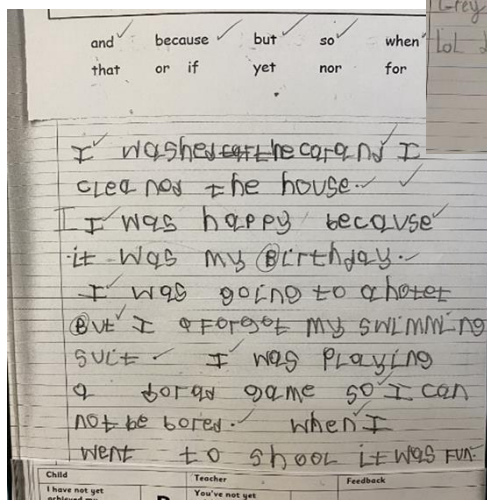 Grey
LoL
and because but so when
that or if yet nor for
I washed the car and I
cleanod the house.
I was happy because
it was my Birthday.
I was going to a hotet
But I forgot my swimming
suit I was playing
a borad game so I can
not be bored. when I
went to shool it was fun.
Child Teacher Feedback
I have not yet You've not yet